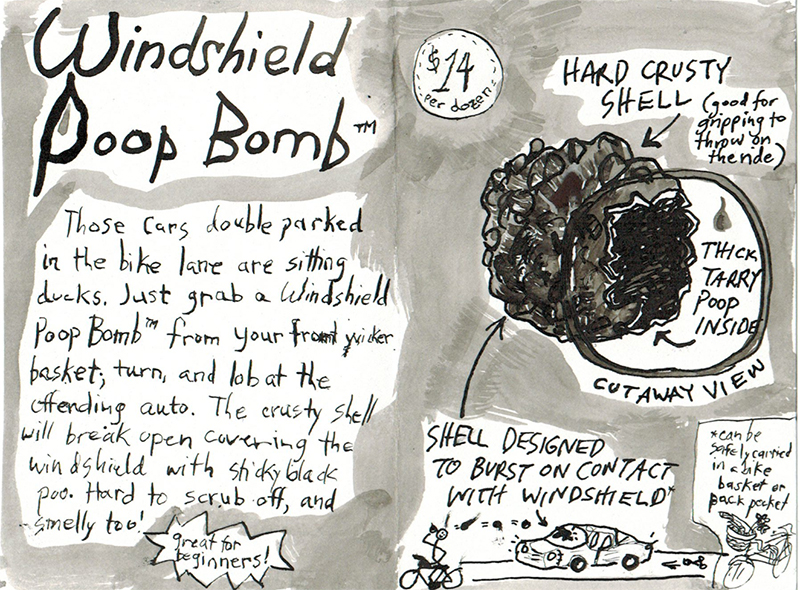 Windshield
Poop Bomb™
Those cars double parked
in the bike lane are sitting
ducks. Just grab a Windshield
Poop Bomb™ from your front wicker
basket, turn, and lob at the
offending auto. The crusty shell
will break open covering the
windshield with sticky black
poo. Hard to scrub off, and
smelly too!
great for
beginners!
$14
per dozen
HARD CRUSTY
SHELL (good for
gripping to
throw on
the ride)
THICK
TARRY
POOP
INSIDE
CUTAWAY VIEW
SHELL DESIGNED
TO BURST ON CONTACT
WITH WINDSHIELD*
*can be
safely carried
in a bike
basket or
pack pocket